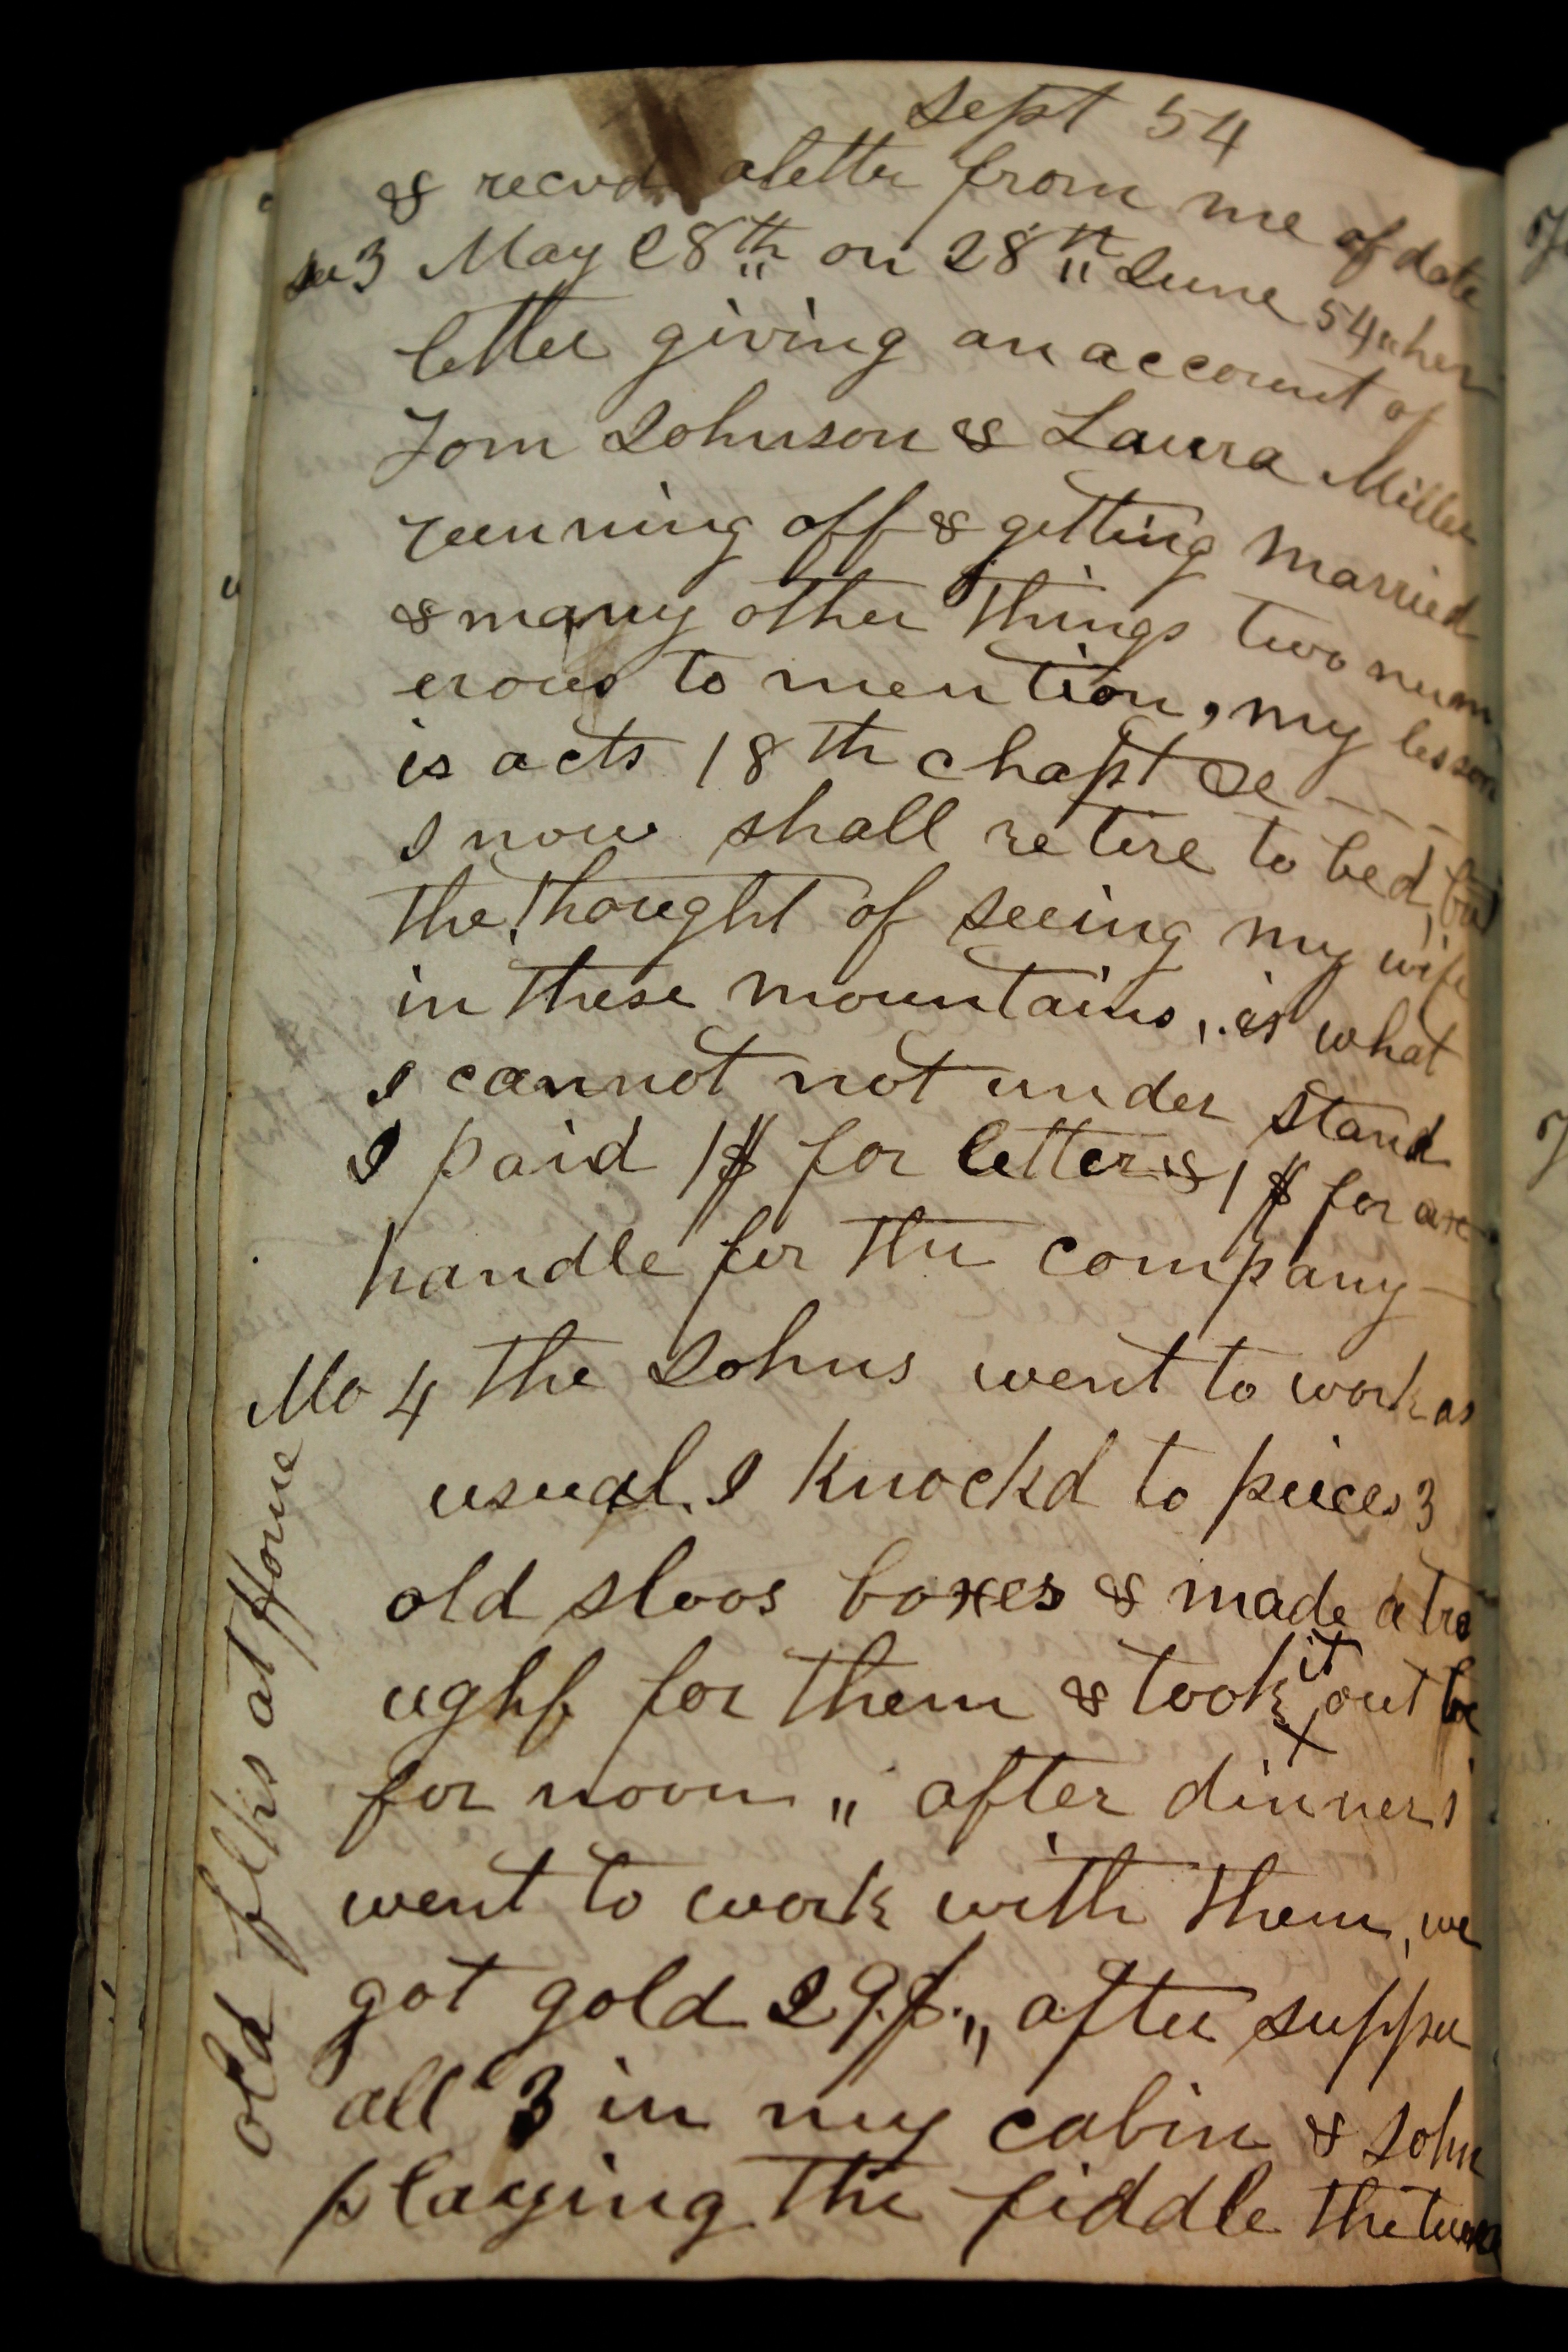 Sept 54
& recvd a letter from me of date
Su 3 May 28th on 28th June 54 " her
letter giving an account of
Tom Johnson & Laura Miller
running off & getting married
& many other things two num
erous to mention, my lesson
is acts 18th chapt &c ---
I now shall retire to bed, but
the thought of seeing my wife
in these mountains, is what
I cannot not under stand
I paid 1$ for letter & 1$ for axe
handle for the company —
Mo 4 the Johns went to work as
usual. I knockd to pieces 3
old sloos boxes & made a tro
ugh for them & took it out be
for noon " after dinner I
went to work with them, we
got gold 29$. " after supper
all 3 in my cabin & John
playing the fiddle the tune
old folks at Home